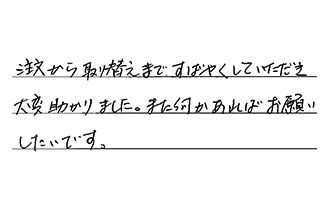 注文から取り替えまで、すばやくしていただき
大変助かりました。また何かあればお願い
したいです。